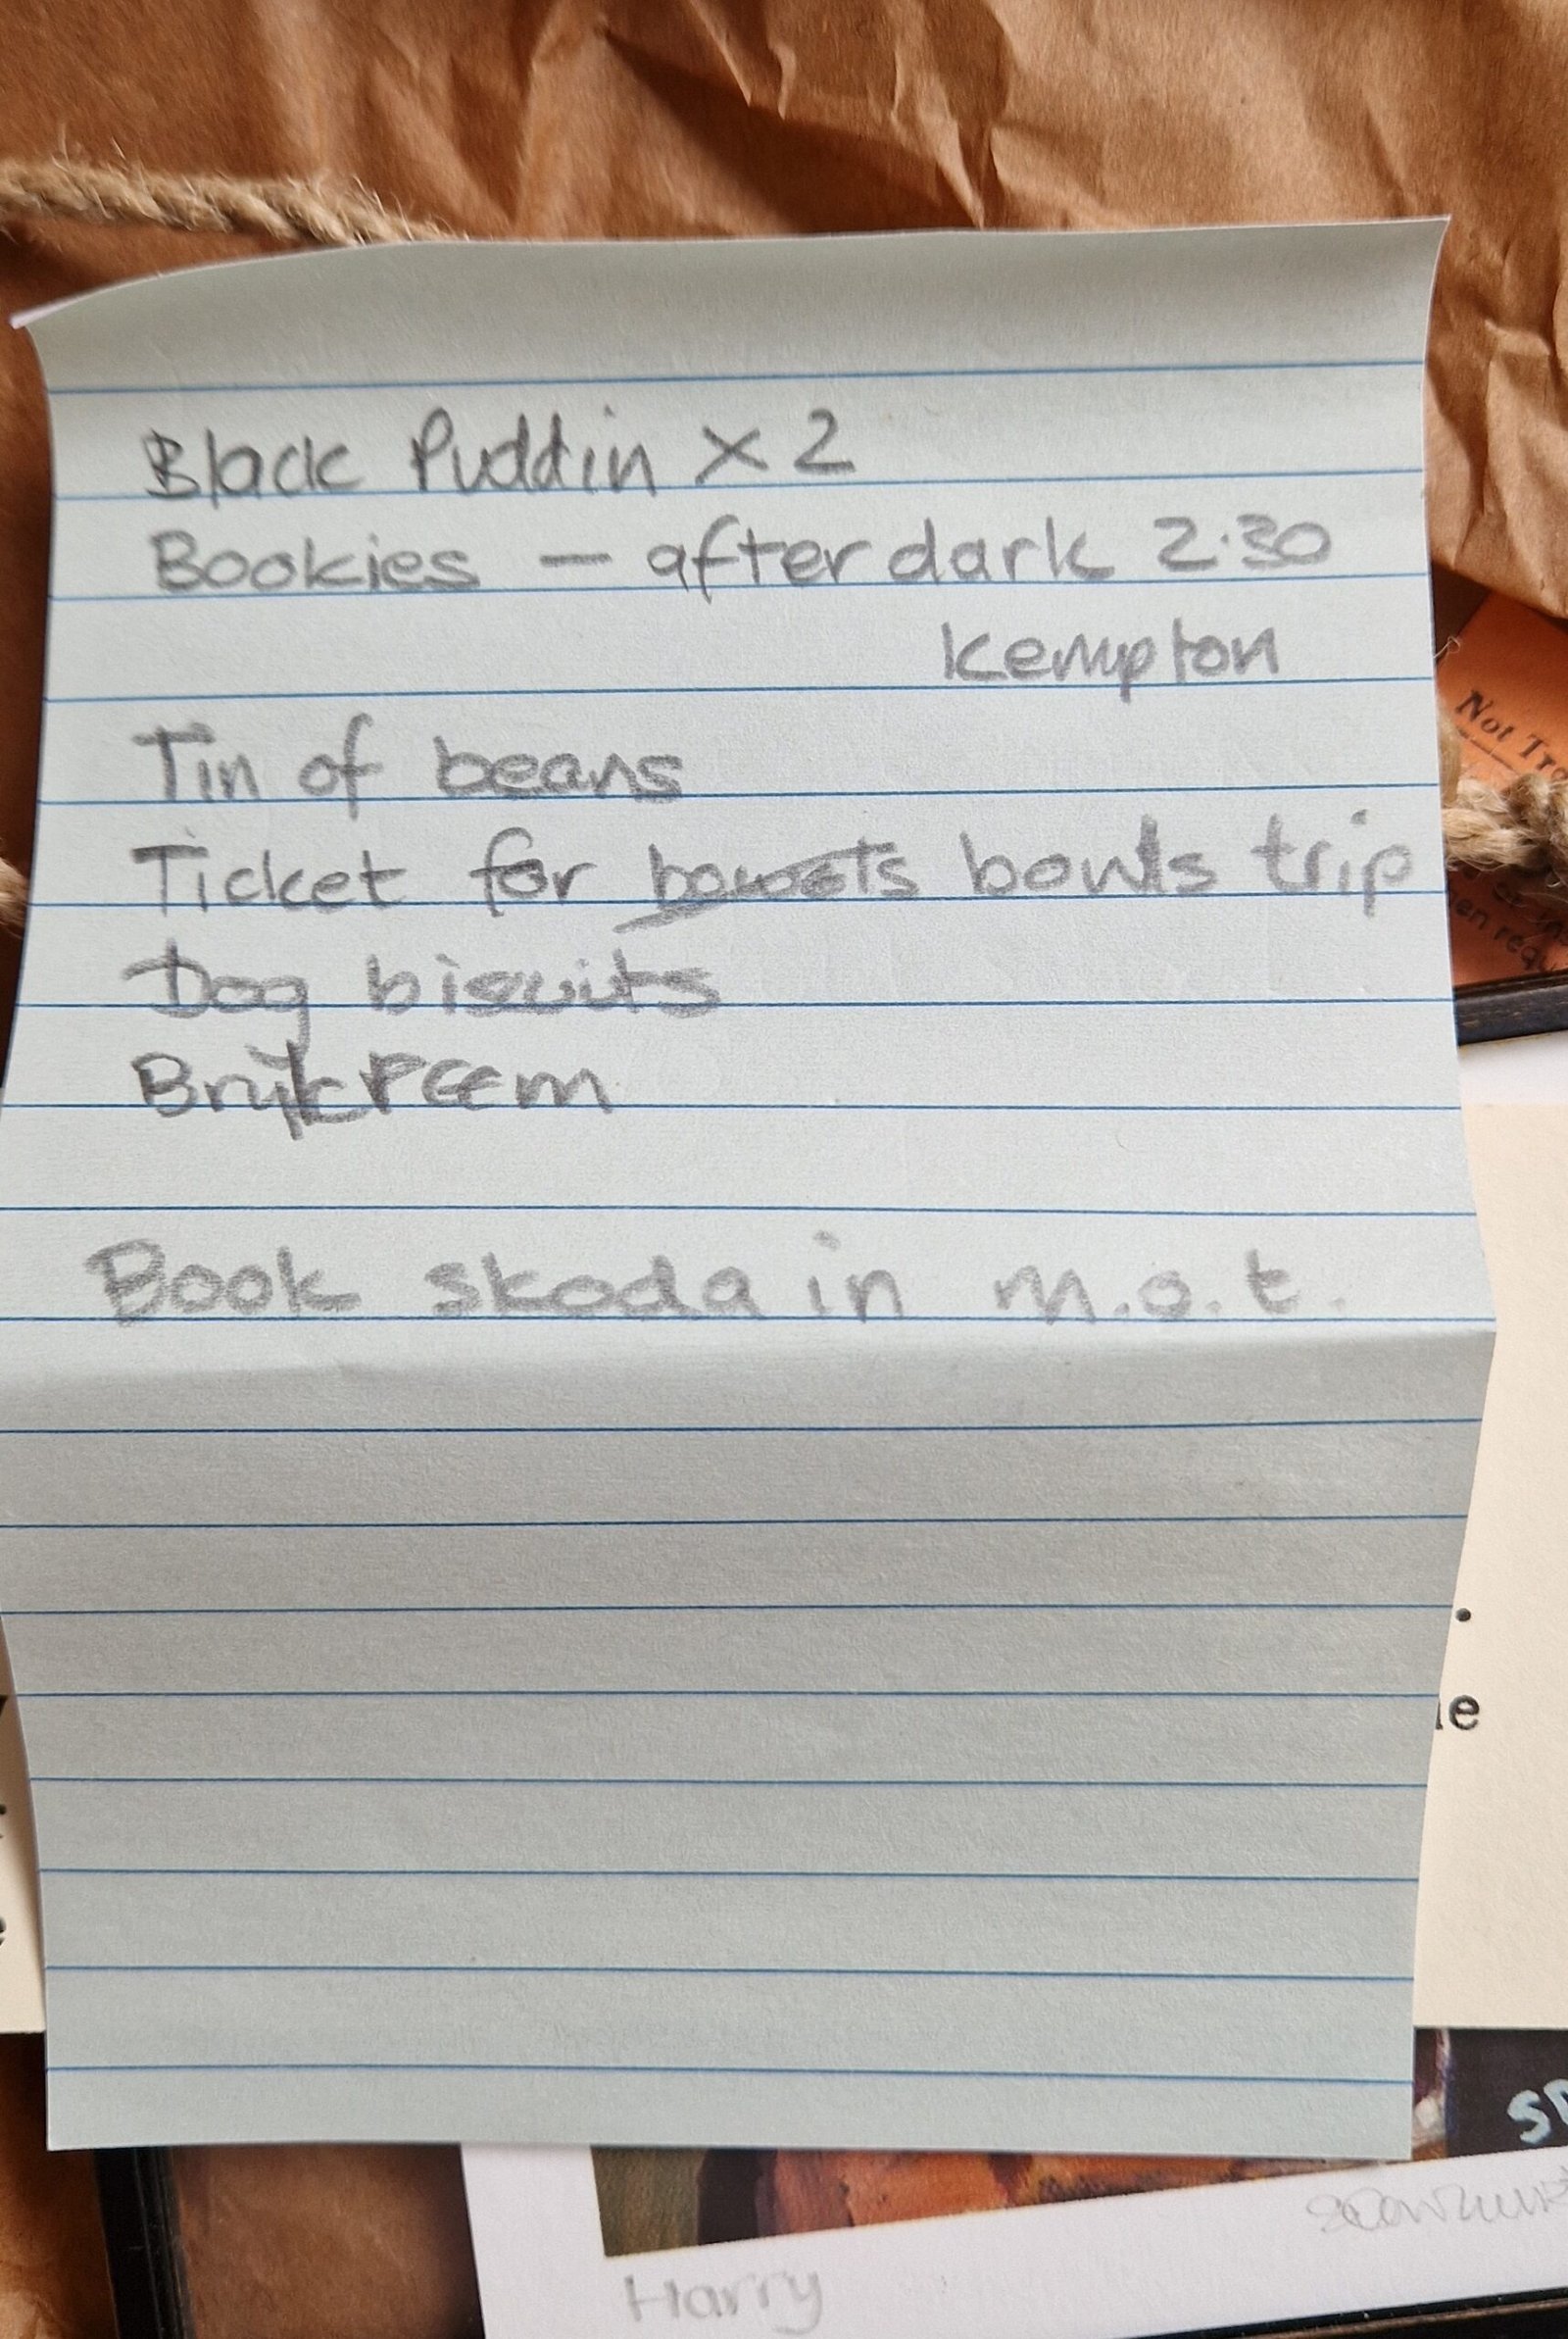 Black Puddin x 2
Bookies — after dark 2.30
Kempton
Tin of beans
Ticket for bowels bowls trip
Dog biscuits
Brylcreem
Book skoda in m.o.t.
Not Tr
Harry